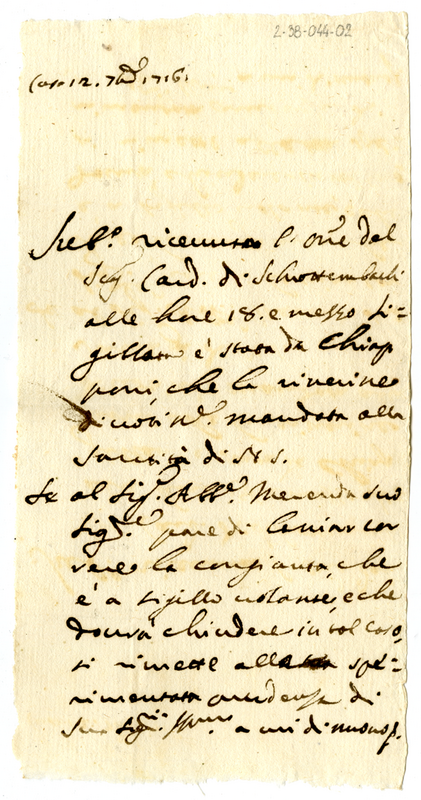 2-38-044-02
Casa 12. 7bre 1716.
ricevuta l'
Sig. Card. di Schrottembach
alle hore 18. e mezzo si=
gillata è stata da Chiap
poni, che la riverisce
mandata alla
Santità di N. S.
Se al Sig.r Abb.e Merenda suo
Sig.re pare di lasciar cor
rere la congiunta, che
è a sigillo volante, e che
dovrà chiudere in tal caso,
si rimette alla spe=
rimentata prudenza di
Sua Sig.ria a cui di nuovo